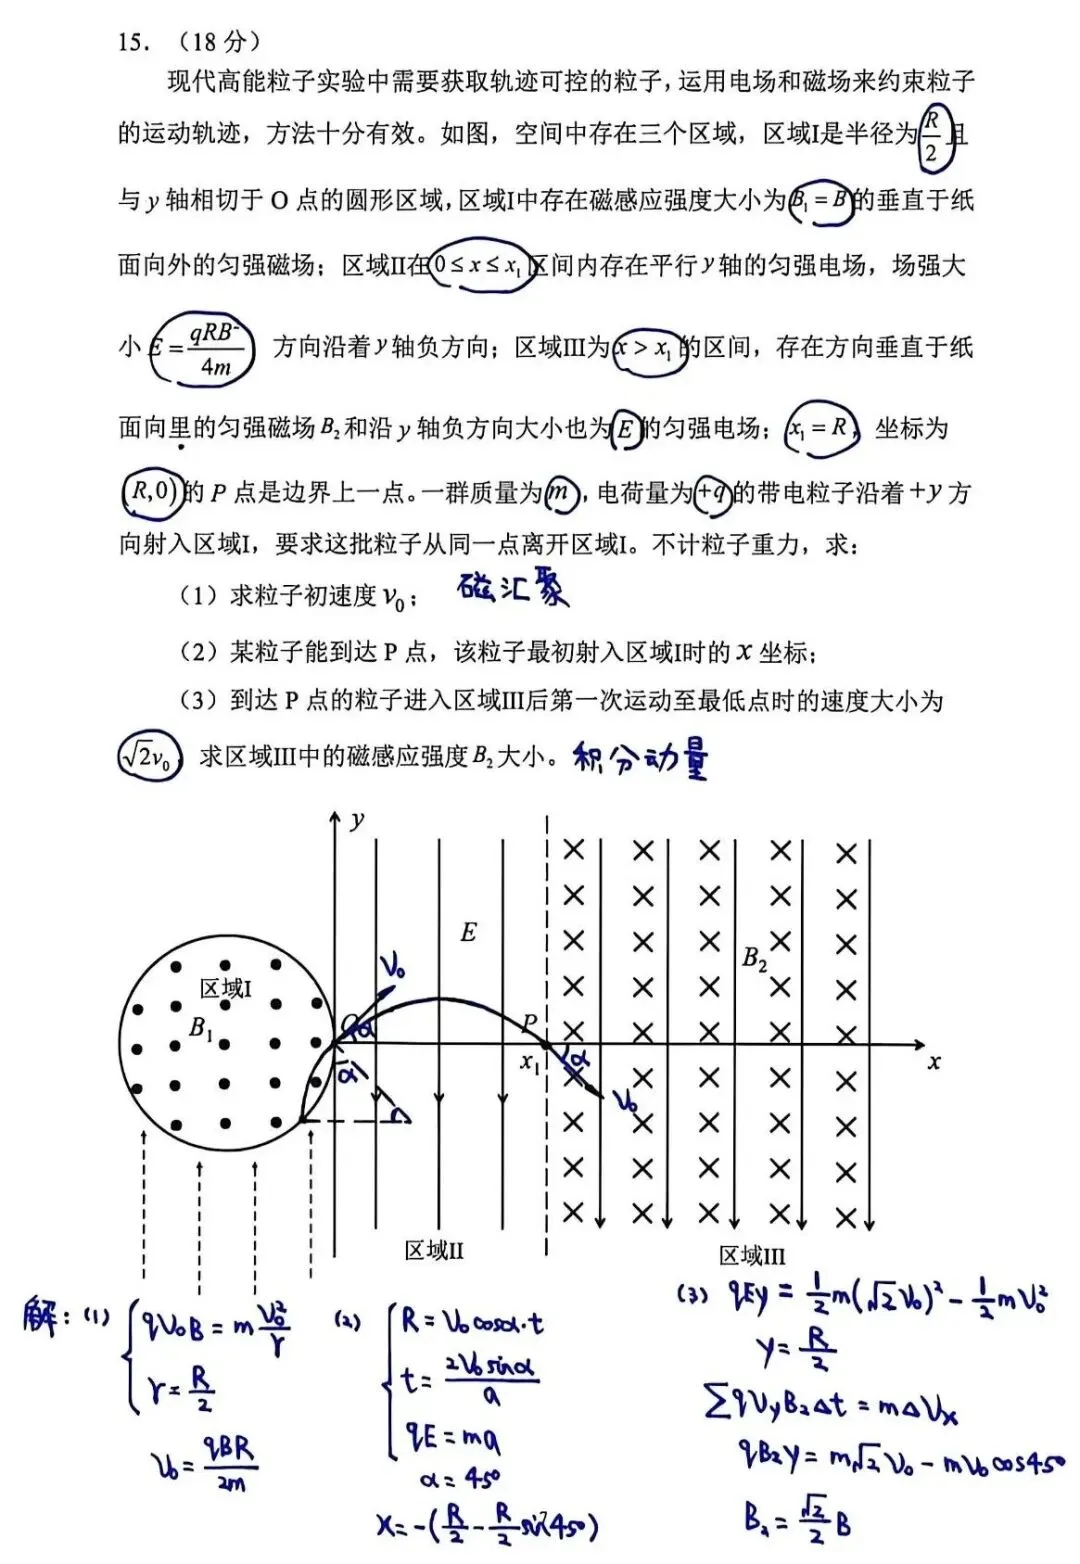 15. （18分）
现代高能粒子实验中需要获取轨迹可控的粒子，运用电场和磁场来约束粒子
的运动轨迹，方法十分有效。如图，空间中存在三个区域，区域I是半径为R/2且
与y轴相切于O点的圆形区域，区域I中存在磁感应强度大小为B₁=B的垂直于纸
面向外的匀强磁场；区域II在0≤x≤x₁区间内存在平行y轴的匀强电场，场强大
小E=qRB²/4m 方向沿着y轴负方向；区域III为x>x₁的区间，存在方向垂直于纸
面向里的匀强磁场B₂和沿y轴负方向大小也为E的匀强电场；x₁=R，坐标为
(R,0)的P点是边界上一点。一群质量为m，电荷量为+q的带电粒子沿着+y方
向射入区域I，要求这批粒子从同一点离开区域I。不计粒子重力，求：
（1）求粒子初速度v₀； 磁汇聚
（2）某粒子能到达P点，该粒子最初射入区域I时的x坐标；
（3）到达P点的粒子进入区域III后第一次运动至最低点时的速度大小为
√2v₀，求区域III中的磁感应强度B₂大小。积分动量
y
E
B₂
V₀
区域I
B₁
O
α
P
x₁
x
α
α
V₀
r
区域II
区域III
解：(1) qV₀B = m V₀²/r
r = R/2
V₀ = qBR/2m
(2) R = V₀cosα·t
t = 2V₀sinα/a
qE = ma
α = 45°
x = -(R/2 - R/2 sin45°)
(3) qEy = 1/2 m(√2V₀)² - 1/2 mV₀²
y = R/2
∑qVyB₂Δt = mΔVx
qB₂y = m√2V₀ - mV₀cos45°
B₂ = √2/2 B